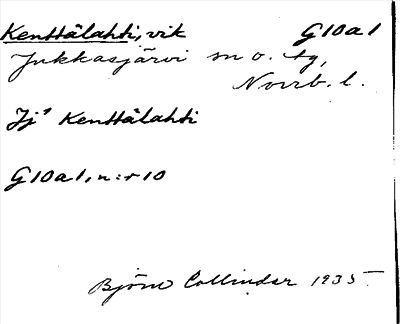 Kenttälahti, vik G10a1
Jukkasjärvi sn o. tg,
Norrb. l.
Jjs Kenttälahti
G10a1, n:r 10
Björn Collinder 1935